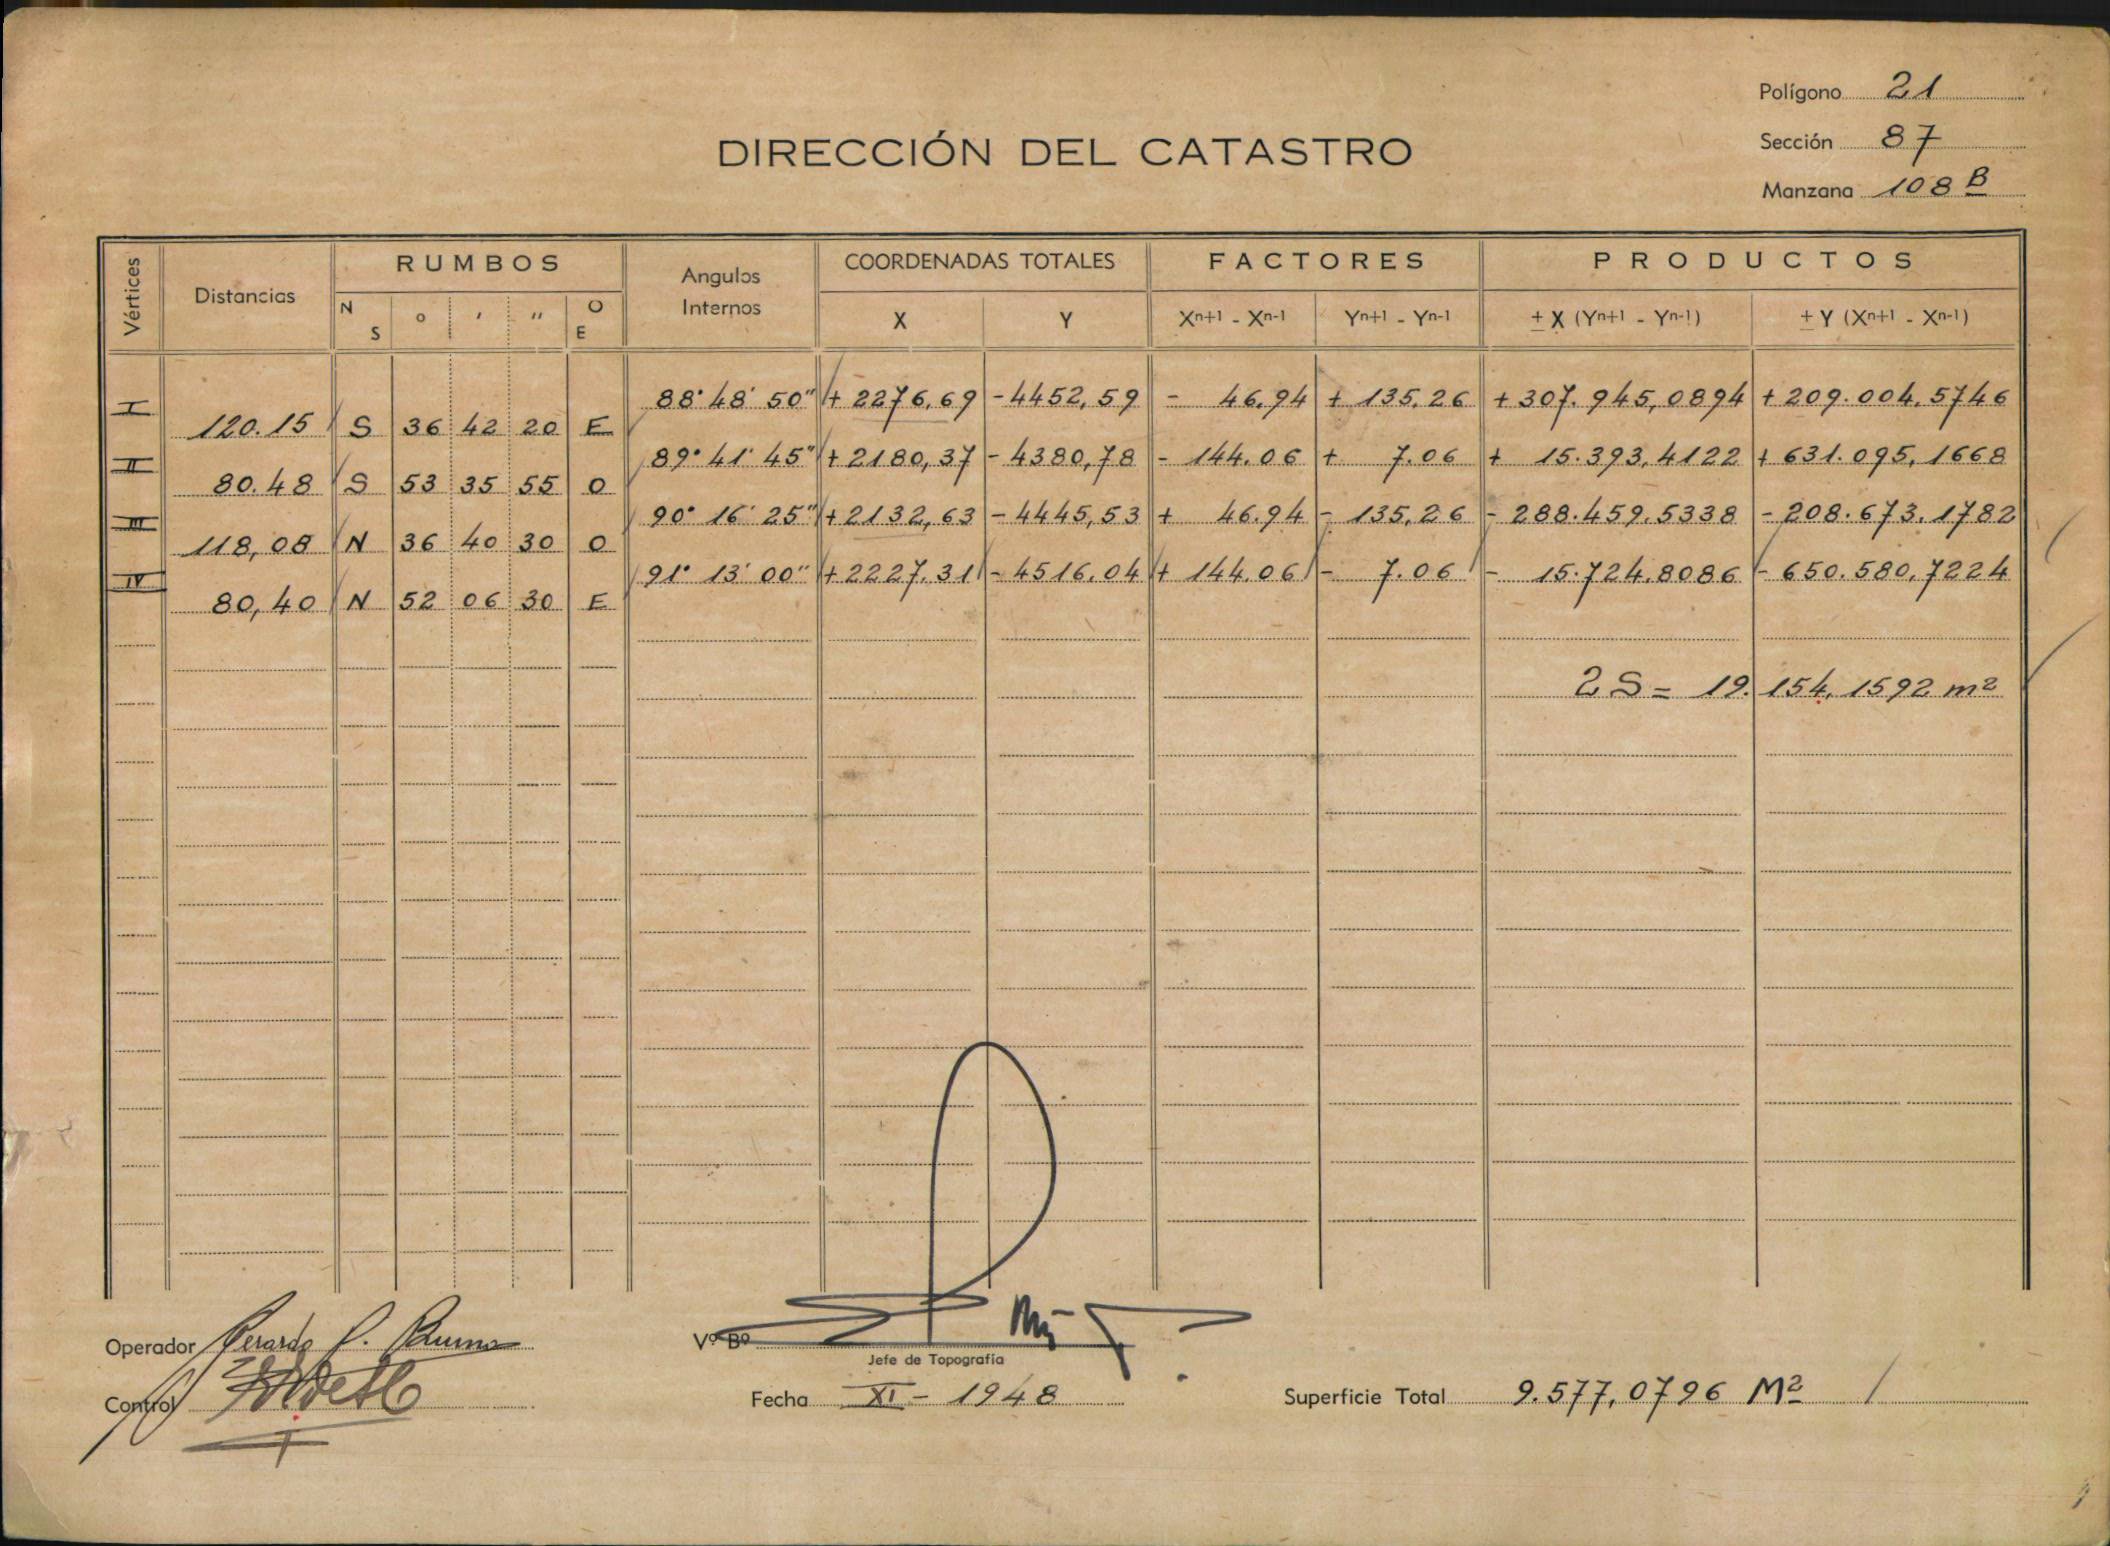 Polígono 21
DIRECCIÓN DEL CATASTRO
Sección 87
Manzana 108 B
Vértices Distancias RUMBOS Angulos Internos COORDENADAS TOTALES FACTORES PRODUCTOS
N S o ' '' O E X Y Xn+1 - Xn-1 Yn+1 - Yn-1 ± X (Yn+1 - Yn-1) ± Y (Xn+1 - Xn-1)
I 88° 48' 50" + 2276,69 - 4452,59 - 46,94 + 135,26 + 307.945,0894 + 209.004,5746
120.15 S 36 42 20 E
II 89° 41' 45" + 2180,37 - 4380,78 - 144.06 + 7.06 + 15.393,4122 + 631.095,1668
80.48 S 53 35 55 O
III 90° 16' 25" + 2132,63 - 4445,53 + 46.94 - 135,26 - 288.459.5338 - 208.673.1782
118,08 N 36 40 30 O
IV 91° 13' 00" + 2227,31 - 4516,04 + 144.06 - 7.06 - 15.724.8086 - 650.580,7224
80,40 N 52 06 30 E
2 S = 19.154,1592 m2
Operador Gerardo
Vº Bº
Jefe de Topografía
Control
Fecha XI - 1948
Superficie Total 9.577,0796 M2